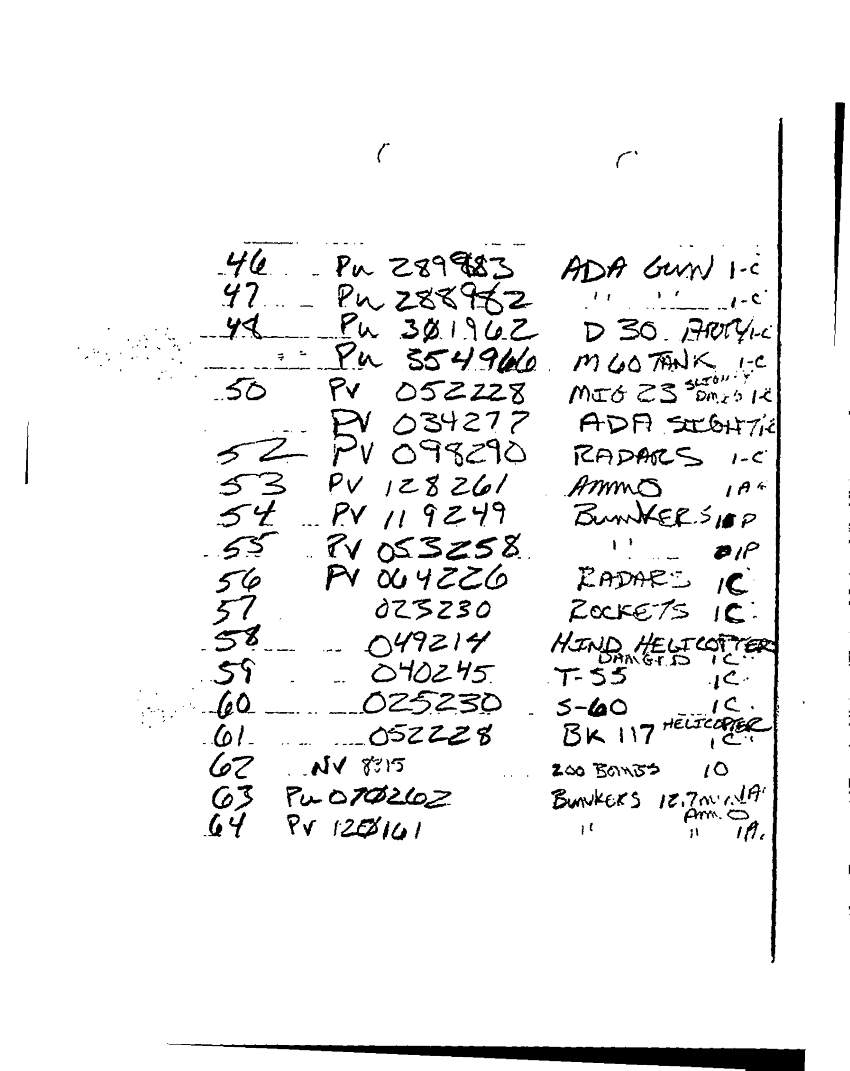 46 Pu 289983 ADA GUN 1-C
47 Pu 288982 " " 1-C
48 Pu 301962 D 30 ARTY 1-C
" " Pu 354966 M60 TANK 1-C
50 PV 052228 MIG 23 1-C
PV 034277 ADA SIGHT 1C
52 PV 098290 RADARS 1-C
53 PV 128261 AMMO 1A
54 PV 119249 BUNKERS 1 P
55 PV 053258 " 1P
56 PV 064226 RADARS 1C
57 023230 ROCKETS 1C
58 049214 HIND HELICOPTER
DAMGED 1C
59 040245 T-55 1C
60 025230 S-60 1C
61 052228 BK 117 HELICOPTER
1C
62 NV 200 BOMBS 10
63 Pu 070262 BUNKERS 12.7mm 1A
AMMO
64 PV 120161 " " 1A.